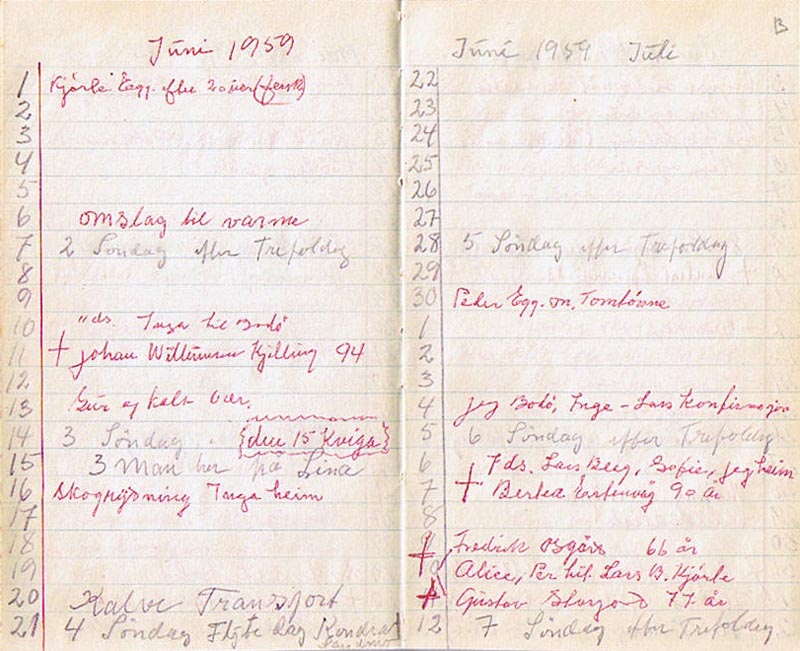 Juni 1959
1 Kjørle Egg. efter 20 uer (fersk)
2
3
4
5
6 omslag til varme
7 2 Søndag efter Trefoldeg
8
9
10 "ds. Inga til Bodø
11 † Johan Kjelling 94
12
13 Sur og kalt vær.
14 3 Søndag {due 15 Kviga}
15 3 Man her på Lina
16 Skogreisning Inga heim
17
18
19
20 Kalve Transport
21 4 Søndag Flyte dag Kondrat
B
Juni 1959 Juli
22
23
24
25
26
27
28 5 Søndag efter Trefoldeg
29
30 Peder Egg. m. Tomtóvne
1
2
3
4 jeg Bodø, Inge - Lars Konfirmasjon
5 6 Søndag efter Trefoldeg
6 7 ds. Lars Berg, Sofie, jeg heim
7 † Bertea 90 år
8
† Fredrik 66 år
Alice, Per hit. Lars B. Kjørle
† Gustav Storjord 77 år
12 7 Søndag efter Trefoldeg